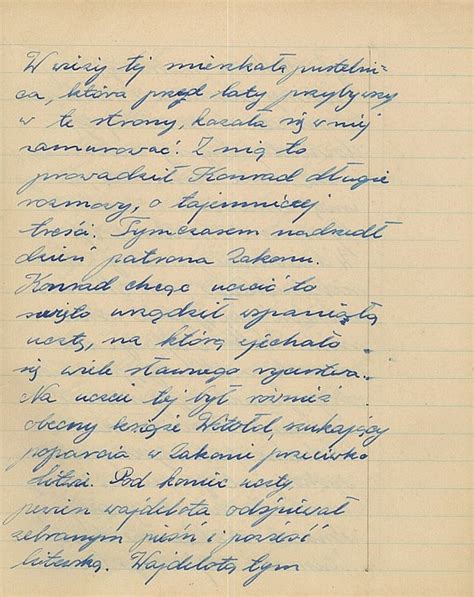 W wieży tej mieszkała pustelni-
ca, która przed laty przybywszy
w te strony, kazała się w niej
zamurować. Z nią to
prowadził Konrad długie
rozmowy, o tajemniczej
treści. Tymczasem nadszedł
dzień patrona Zakonu.
Konrad chcąc uczcić to
święto urządził wspaniałą
ucztę, na którą zjechało
się wiele sławnego rycerstwa.
Na uczcie tej był również
obecny książe Witołd, szukający
poparcia w Zakonie przeciwko
Litwie. Pod koniec uczty
pewien wajdelota odśpiewał
zebranym pieśń i powieść
litewską. Wajdelota tym